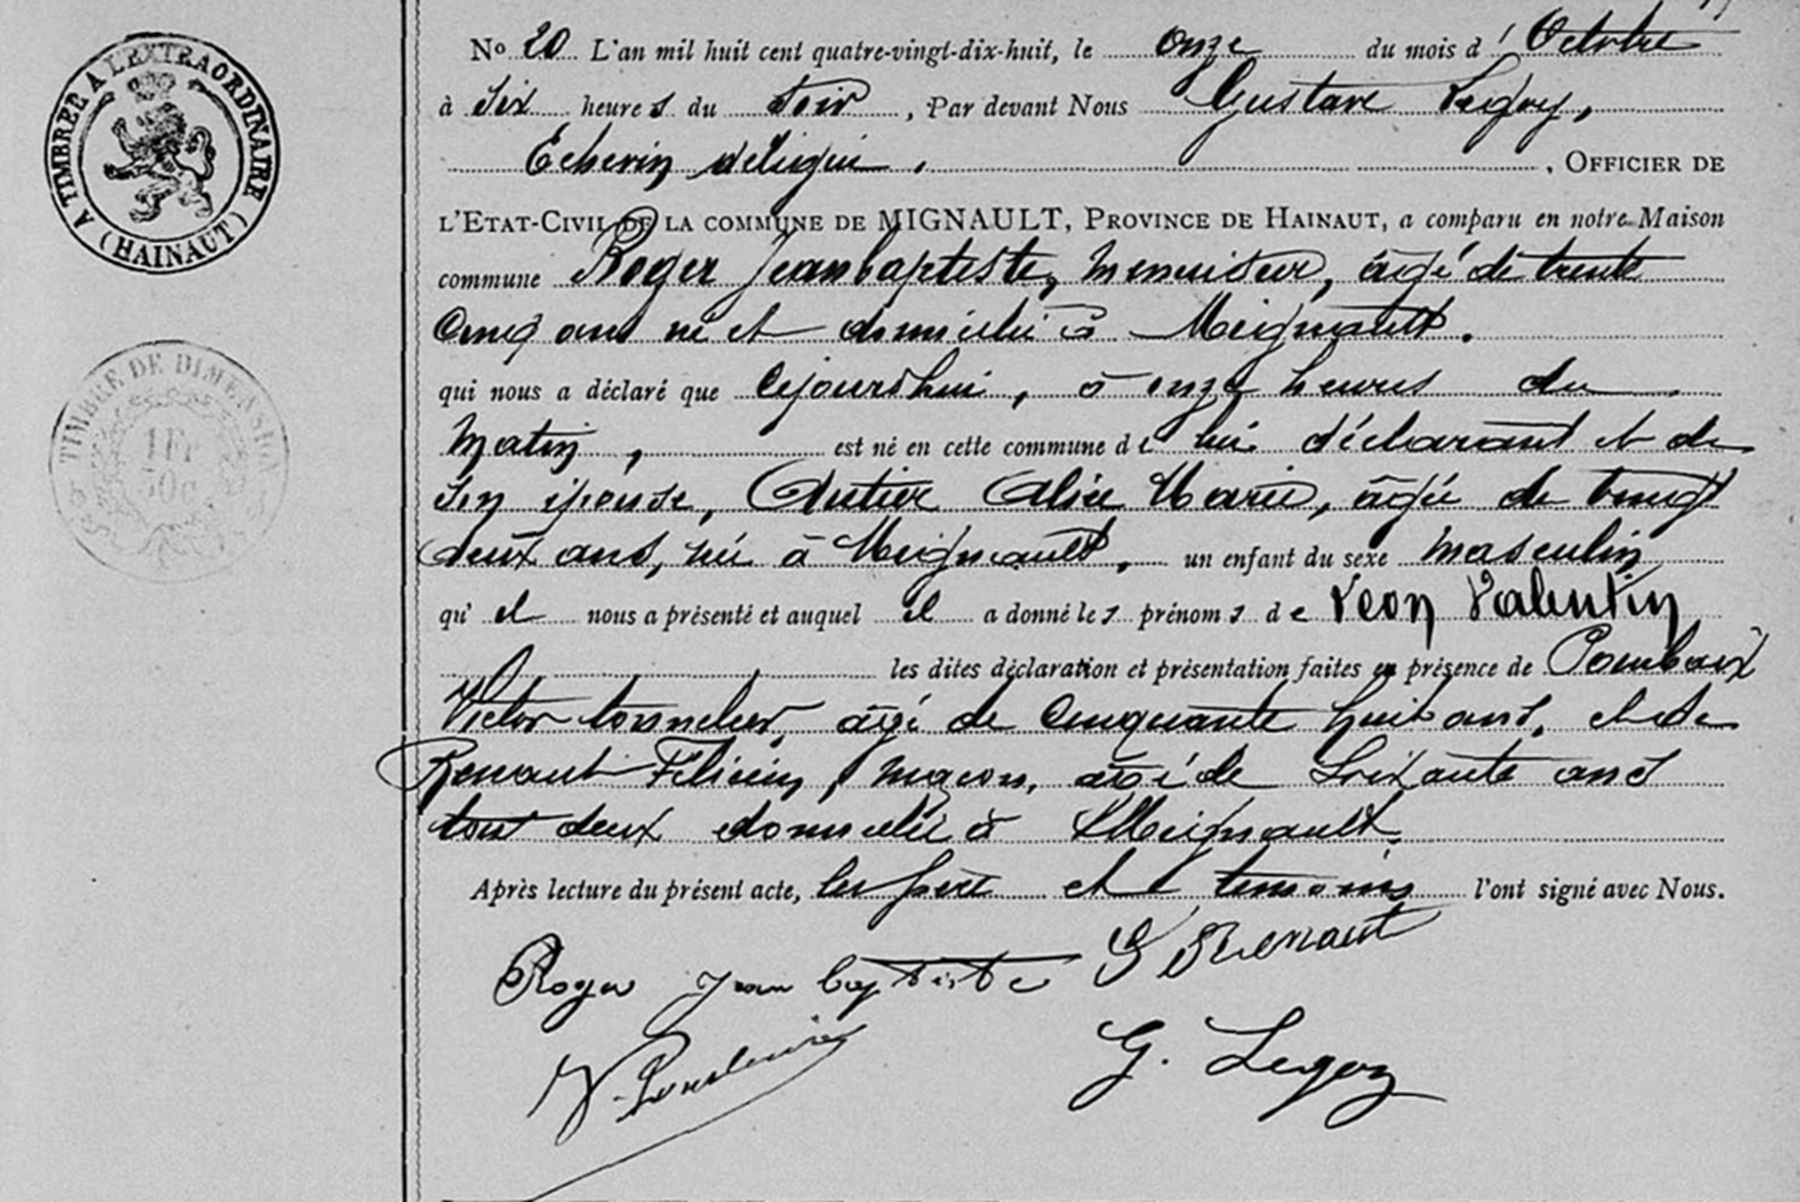 A TIMBRE A L'EXTRAORDINAIRE
(HAINAUT)
TIMBRE DE DIMENSION
1 Fr
50c
No 20 L'an mil huit cent quatre-vingt-dix-huit, le onze du mois d' Octobre
à six heures du soir, Par devant Nous Gustave Legay,
Echevin délégué, , OFFICIER DE
L'ETAT-CIVIL DE LA COMMUNE DE MIGNAULT, PROVINCE DE HAINAUT, a comparu en notre Maison
commune Roger Jeanbaptiste, menuisier, âgé de trente
cinq ans né et domicilié à Meignault.
qui nous a déclaré que cejourdhui, à onze heures du
matin, est né en cette commune de lui déclarant et de
son épouse, Autier Alice Marie, âgée de vingt
deux ans, née à Meignault, un enfant du sexe masculin
qu'il nous a présenté et auquel il a donné les prénoms de Léon Valentin
les dites déclaration et présentation faites en présence de Pourbaix
Victor tonnelier, âgé de cinquante huit ans, et de
Renaut Félicien, maçon, âgé de soixante ans
tous deux domiciliés à Meignault.
Après lecture du présent acte, les père et témoins l'ont signé avec Nous.
Roger Jean baptiste Renaut
V. Pourbaix G. Legay